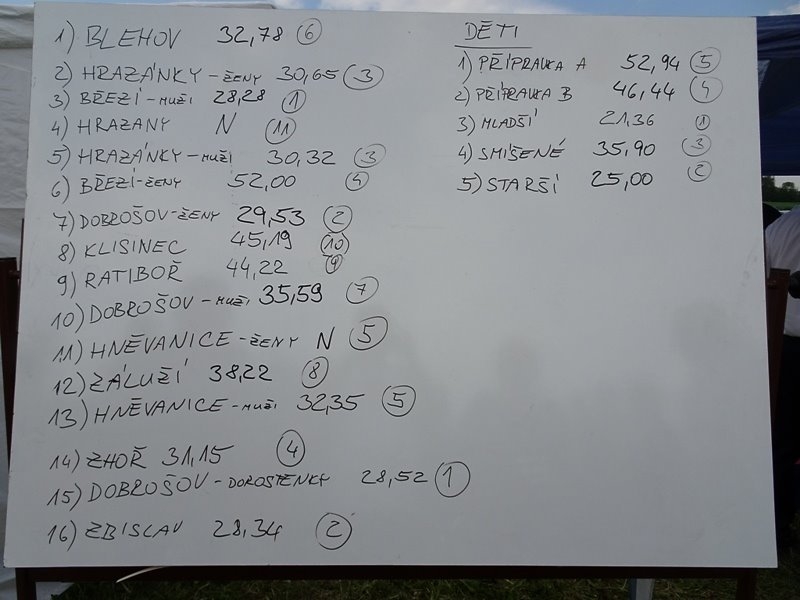 1) BLEHOV 32,78 6
2) HRAZÁNKY - ŽENY 30,65 3
3) BŘEZÍ - MUŽI 28,28 1
4) HRAZANY N 11
5) HRAZÁNKY - MUŽI 30,32 3
6) BŘEZÍ - ŽENY 52,00 4
7) DOBROŠOV - ŽENY 29,53 2
8) KLISINEC 45,19 10
9) RATIBOŘ 44,22 9
10) DOBROŠOV - MUŽI 35,59 7
11) HNĚVANICE - ŽENY N 5
12) ZÁLUŽÍ 38,22 8
13) HNĚVANICE - MUŽI 32,35 5
14) ZHOŘ 31,15 4
15) DOBROŠOV - DOROSTENKY 28,52 1
16) ZBISLAV 28,34 2
DĚTI
1) PŘÍPRAVKA A 52,94 5
2) PŘÍPRAVKA B 46,44 4
3) MLADŠÍ 21,36 1
4) SMÍŠENÉ 35,90 3
5) STARŠÍ 25,00 2